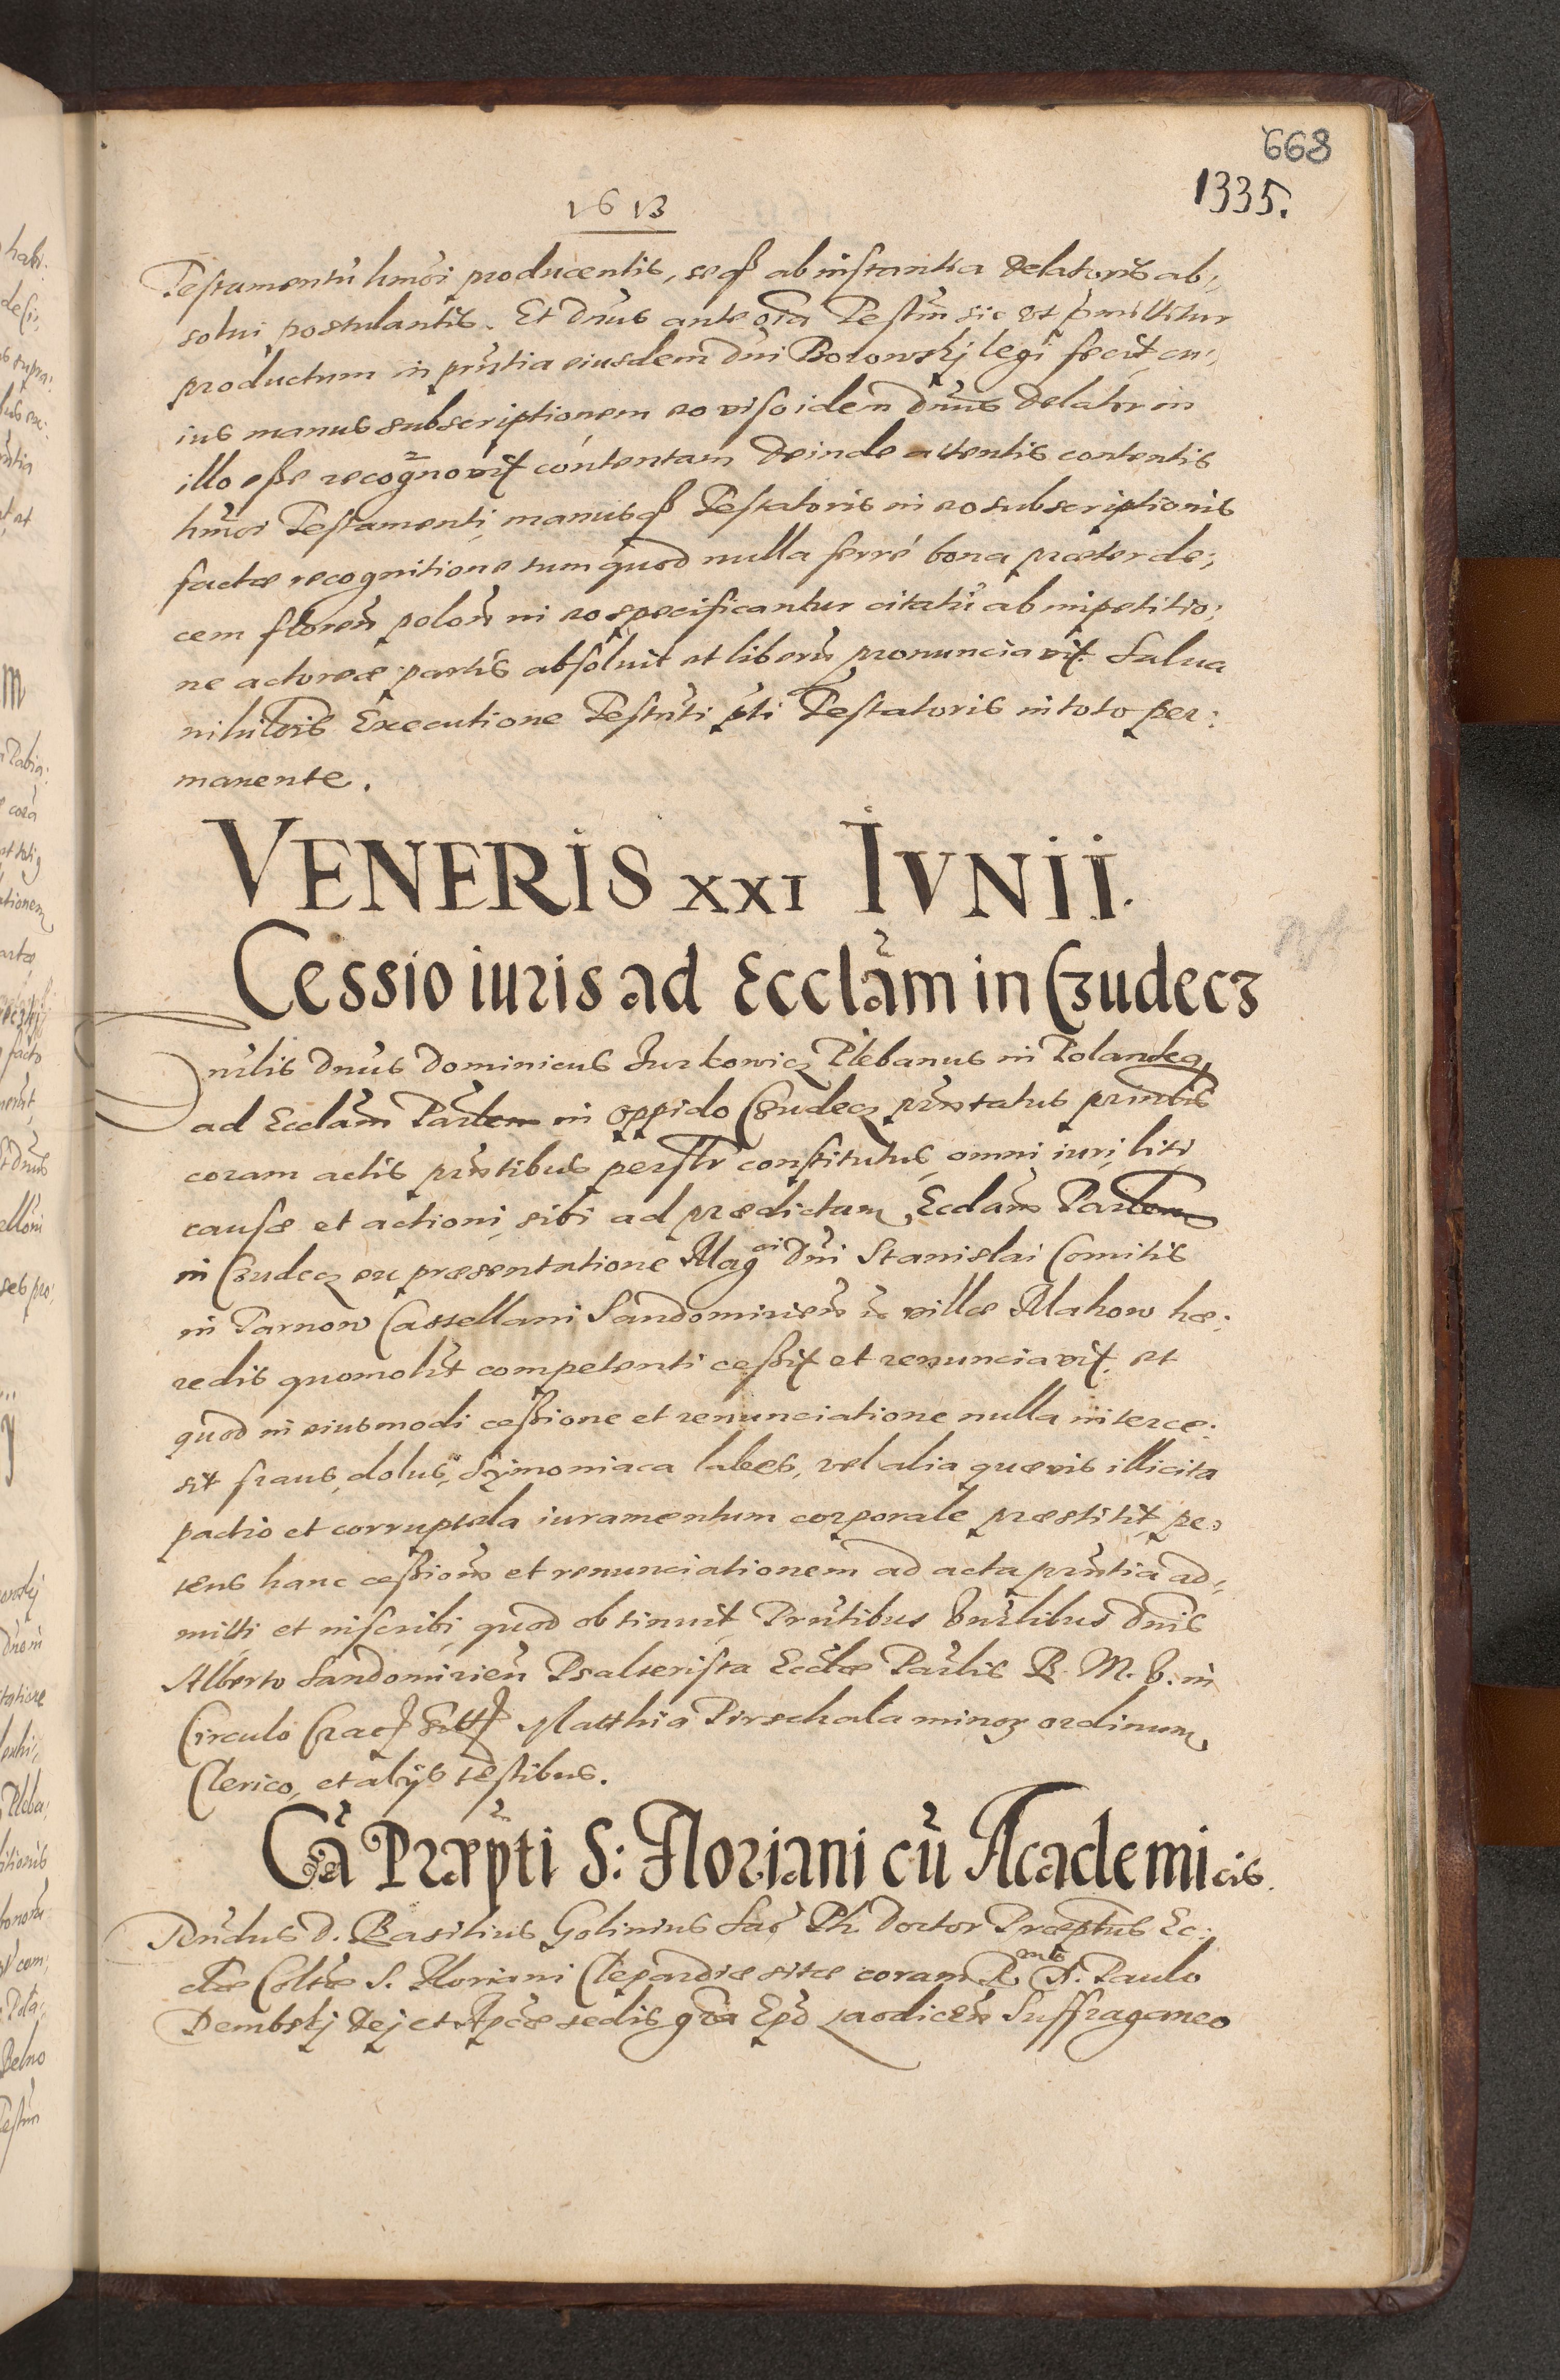 668
1335.
1613
Testamentũ hmõi producentis, seq ab instantia delatoris ab,,
solui postulantis. Et Dnũs ante oĩa Testm̃ sic ut p̃mittitur
productum in prñtia eiusdem Dni Borowskj legi fecit, cu,,
ius manus subscriptionem eo viso idem Dnũs delator in
illo esse recog̃novit contentam deinde attentis contentis
hmõi Testamenti, manusq Testatoris in eo subscriptionis
factæ recognitione tum quod nulla ferrè bona præter de;
cem floreñ poloñ in eo specificantur citatũ ab impetitio;
ne actoreæ partis absoluit et liberũ pronunciavit. Salua
nihilõis Executione Testñti pti Testatoris in toto per:
manente.
VENERIS XXI IVNII.
Cessio iuris ad Ecclãm in Czudecz
nrlis Dnũs Dominicus Jurkowicz Plebanus in Polandcą,
ad Ecclãm Parlem in oppido Czudecz prñtatus prñtis
coram actis prñtibus perslr constitutus omni iuri, liti
causæ et actioni, sibi ad prædictam Ecclãm Parlem
in Czudecz ex præsentatione Mag ci Dni Stanislai Comitis
in Tarnow Castellani Sandomirieñ ĩc villæ Makow hæ;
redis quomolt competenti cessit et renunciavit. et
quod in eiusmodi cessione et renunciatione nulla interce:
sit fraus, dolus, Symoniaca labes, vel alia quævis illicita
pactio et corruptela iuramentum corporale præstitit, pe,
tens hanc cessionẽ et renunciationem ad acta prñtia ad,,
mitti et inscribi, quod obtinuit Prñtibus Vnrlibus Dnis
Alberto Sandomirieñ Psalterista Ecclæ Parlis B. M. V. in
Circulo Crac sitt Matthia Pirschala minor ordinum
Clerico, et alijs testibus.
Cã Præpti S: Floriani cũ Academicis.
Rñdus D. Basilius Golinius Sac Th. Doctor Præptus Ec:
clæ Coltæ S. Floriani Clepardiæ sitæ coram R mo D. Paulo
Dembskj Dej et Apcæ sedis grã Epõ Laodiceñ Suffraganeo